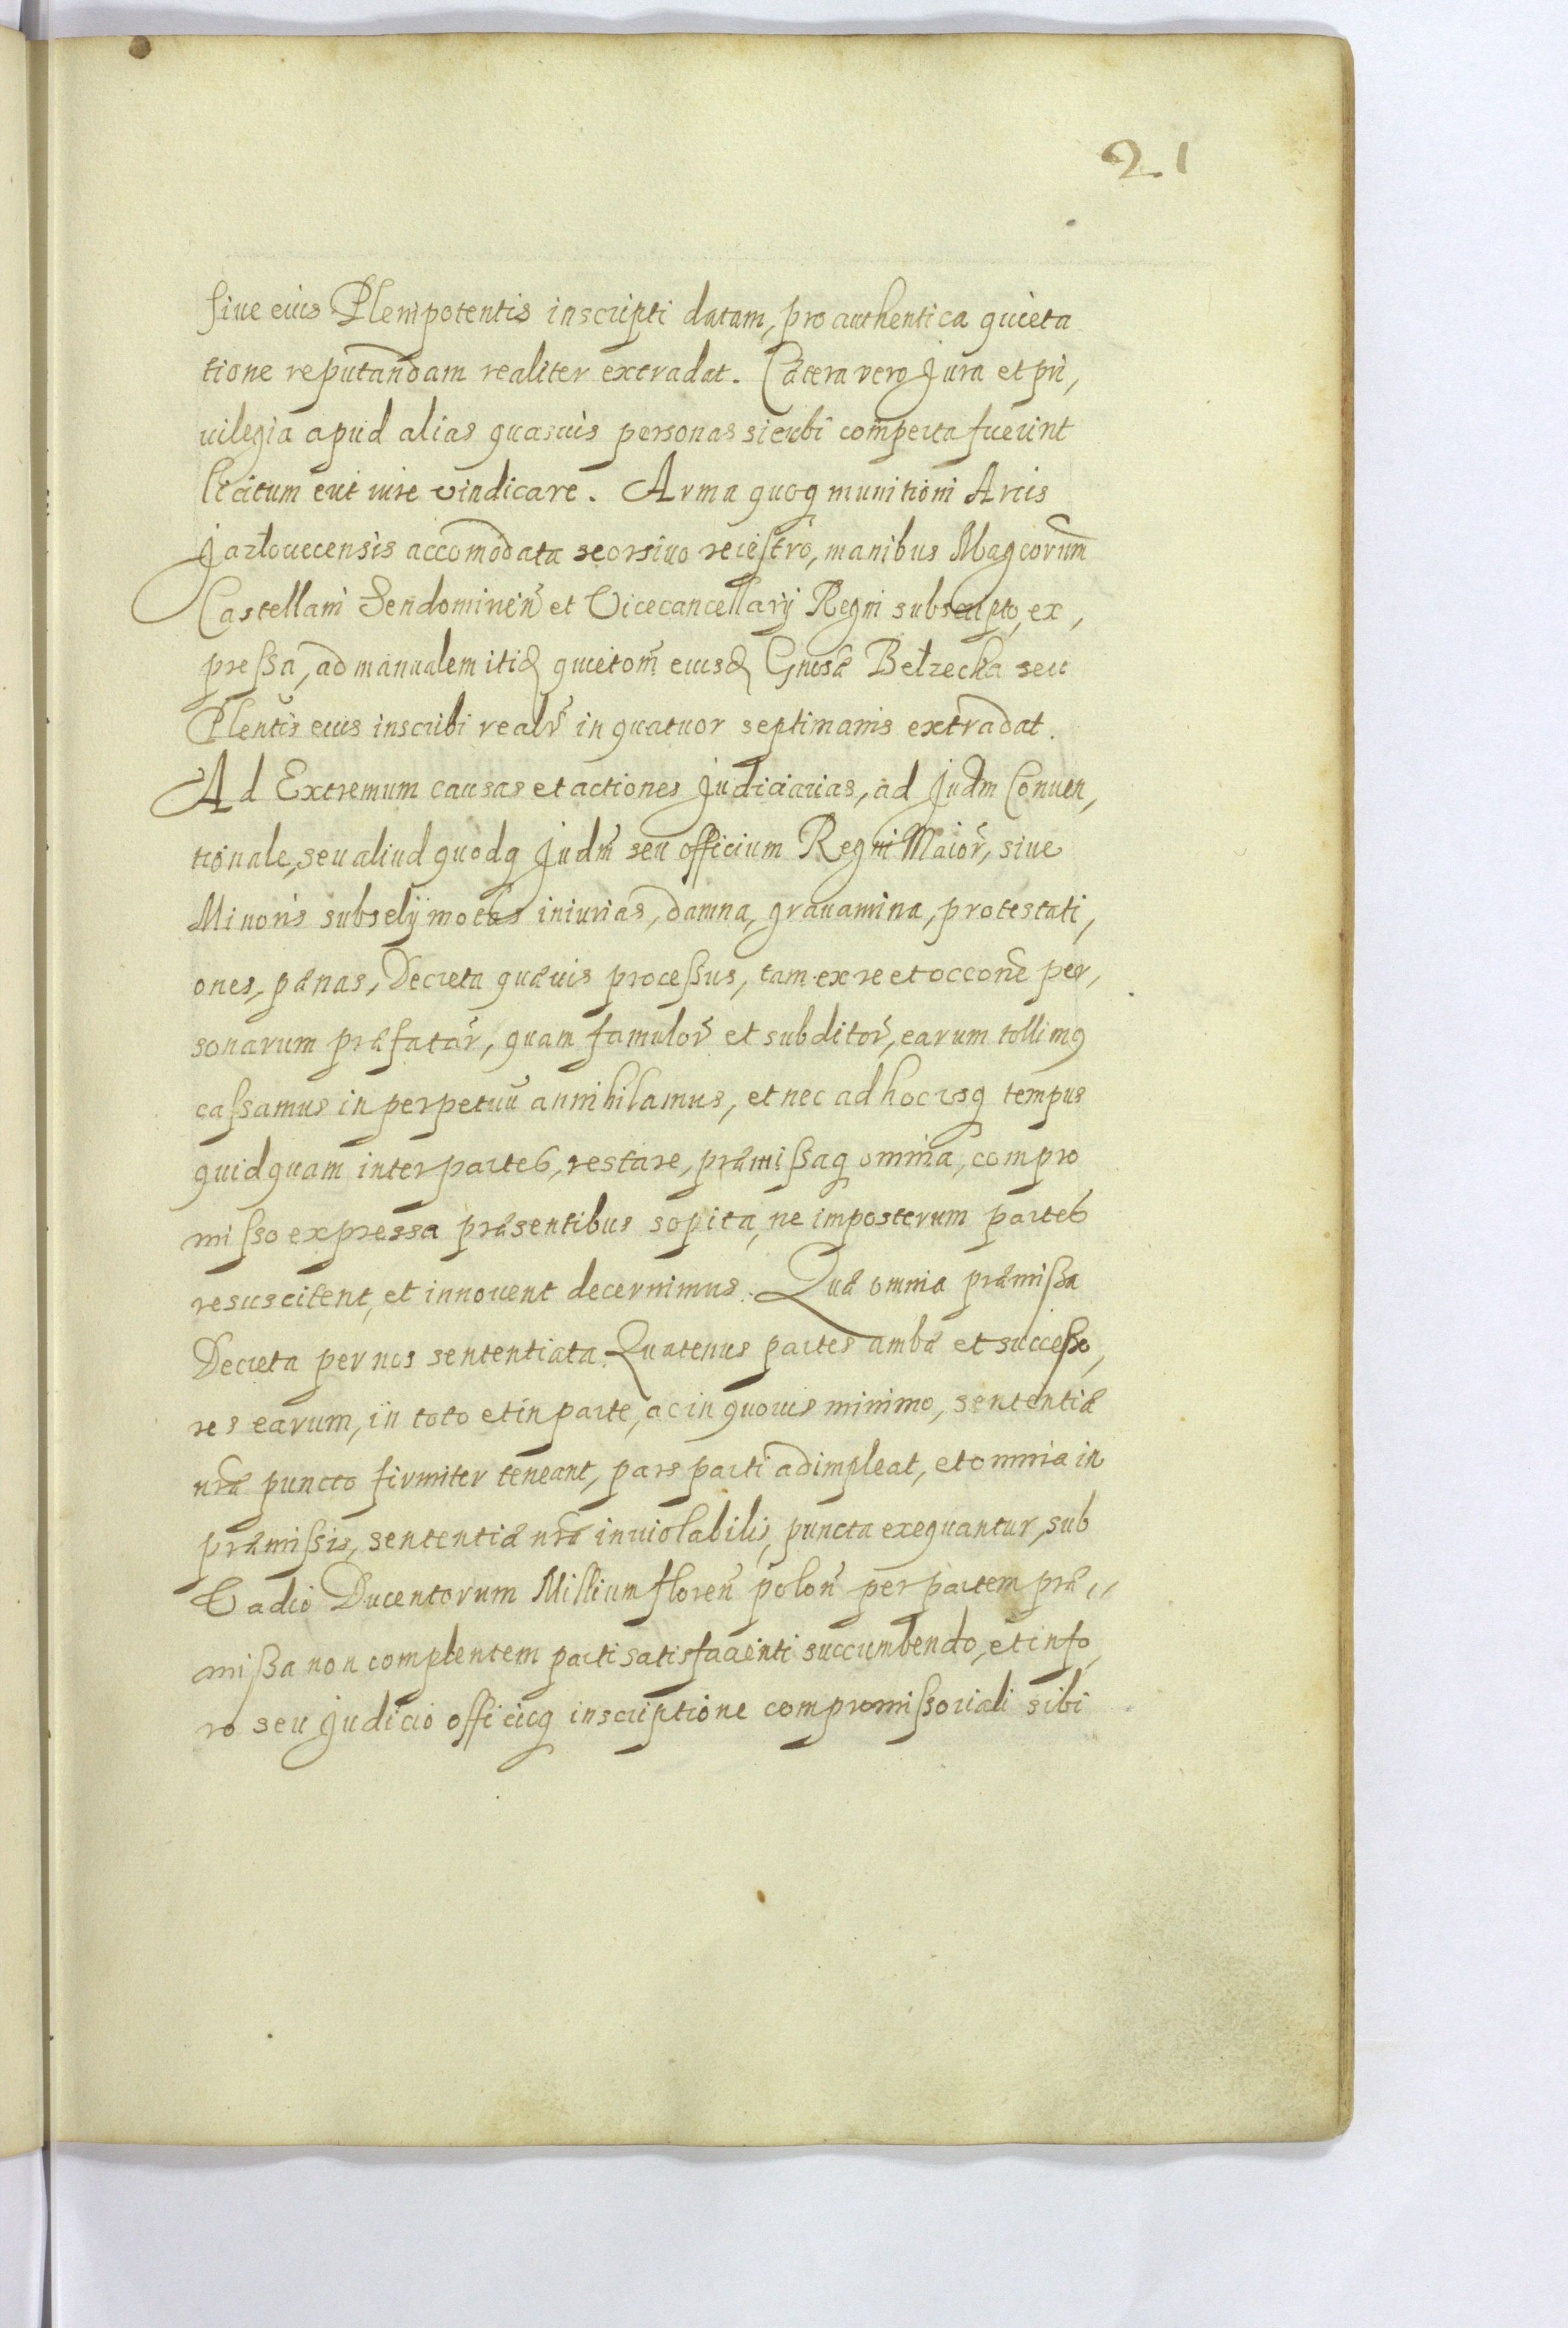 21
siue eius Plenipotentis inscripti datam, pro authentica quieta
tione reputandam realiter extradat. Cætera vero Jura et pri,
uilegia apud alias quasuis personas sicubi comperta fuerint
licitum erit iure vindicare. Arma quoq munitioni Arcis
Jazłouecensis accomodata seorsiuo recestro, manibus Magcorum
Castellani Sendomiriens et Vicecancellarij Regni subscripto, ex,
pressa, ad manualem itid quietom eiusd Gnosæ Bełzecka seu
Plentis eius inscribi realr in quatuor septimanis extradat.
Ad Extremum causas et actiones Judiciarias, ad Judm Conuen,
tionale, seu aliud quodq Judm seu officium Regni Maior, siue
Minoris subselij motas iniurias, damna, grauamina, protestati,
ones, pænas, Decreta quæuis processus, tam ex re et occone per,
sonarum præfatar, quam famulor et subditor, earum tollimq
cassamus in perpetuu annihilamus, et nec ad hoc usq tempus
quidquam inter partes, restare, præmissaq omnia, compro
misso expressa præsentibus sopita, ne imposterum partes
resuscitent, et innouent decernimus. Quæ omnia præmissa
Decreta per nos sententiata. Quatenus partes ambæ et successo,
res earum, in toto et in parte, ac in quouis minimo, sententiæ
nræ puncto firmiter teneant, pars parti adimpleat, et omnia in
præmissis, sententiæ nræ inuiolabilis, puncta exequantur, sub
Vadio Ducentorum Millium floren polon per partem præ,,
missa non complentem parti satisfacienti succumbendo, et in fo,
ro seu Judicio officioq inscriptione compromissoriali sibi